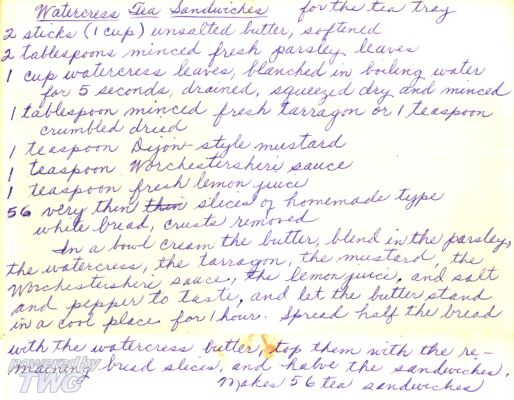 Watercress Tea Sandwiches for the tea tray
2 sticks (1 cup) unsalted butter, softened
2 tablespoons minced fresh parsley leaves
1 cup watercress leaves, blanched in boiling water
for 5 seconds, drained, squeezed dry and minced
1 tablespoon minced fresh tarragon or 1 teaspoon
crumbled dried
1 teaspoon Dijon-style mustard
1 teaspoon Worchestershire sauce
1 teaspoon fresh lemon juice
56 very thin thin slices of homemade type
white bread, crusts removed
In a bowl cream the butter, blend in the parsley,
the watercress, the tarragon, the mustard, the
Worchestershire sauce, the lemon juice, and salt
and pepper to taste, and let the butter stand
in a cool place for 1 hour. Spread half the bread
with the watercress butter, top them with the re-
maining bread slices, and halve the sandwiches.
Makes 56 tea sandwiches
powered by
TWG